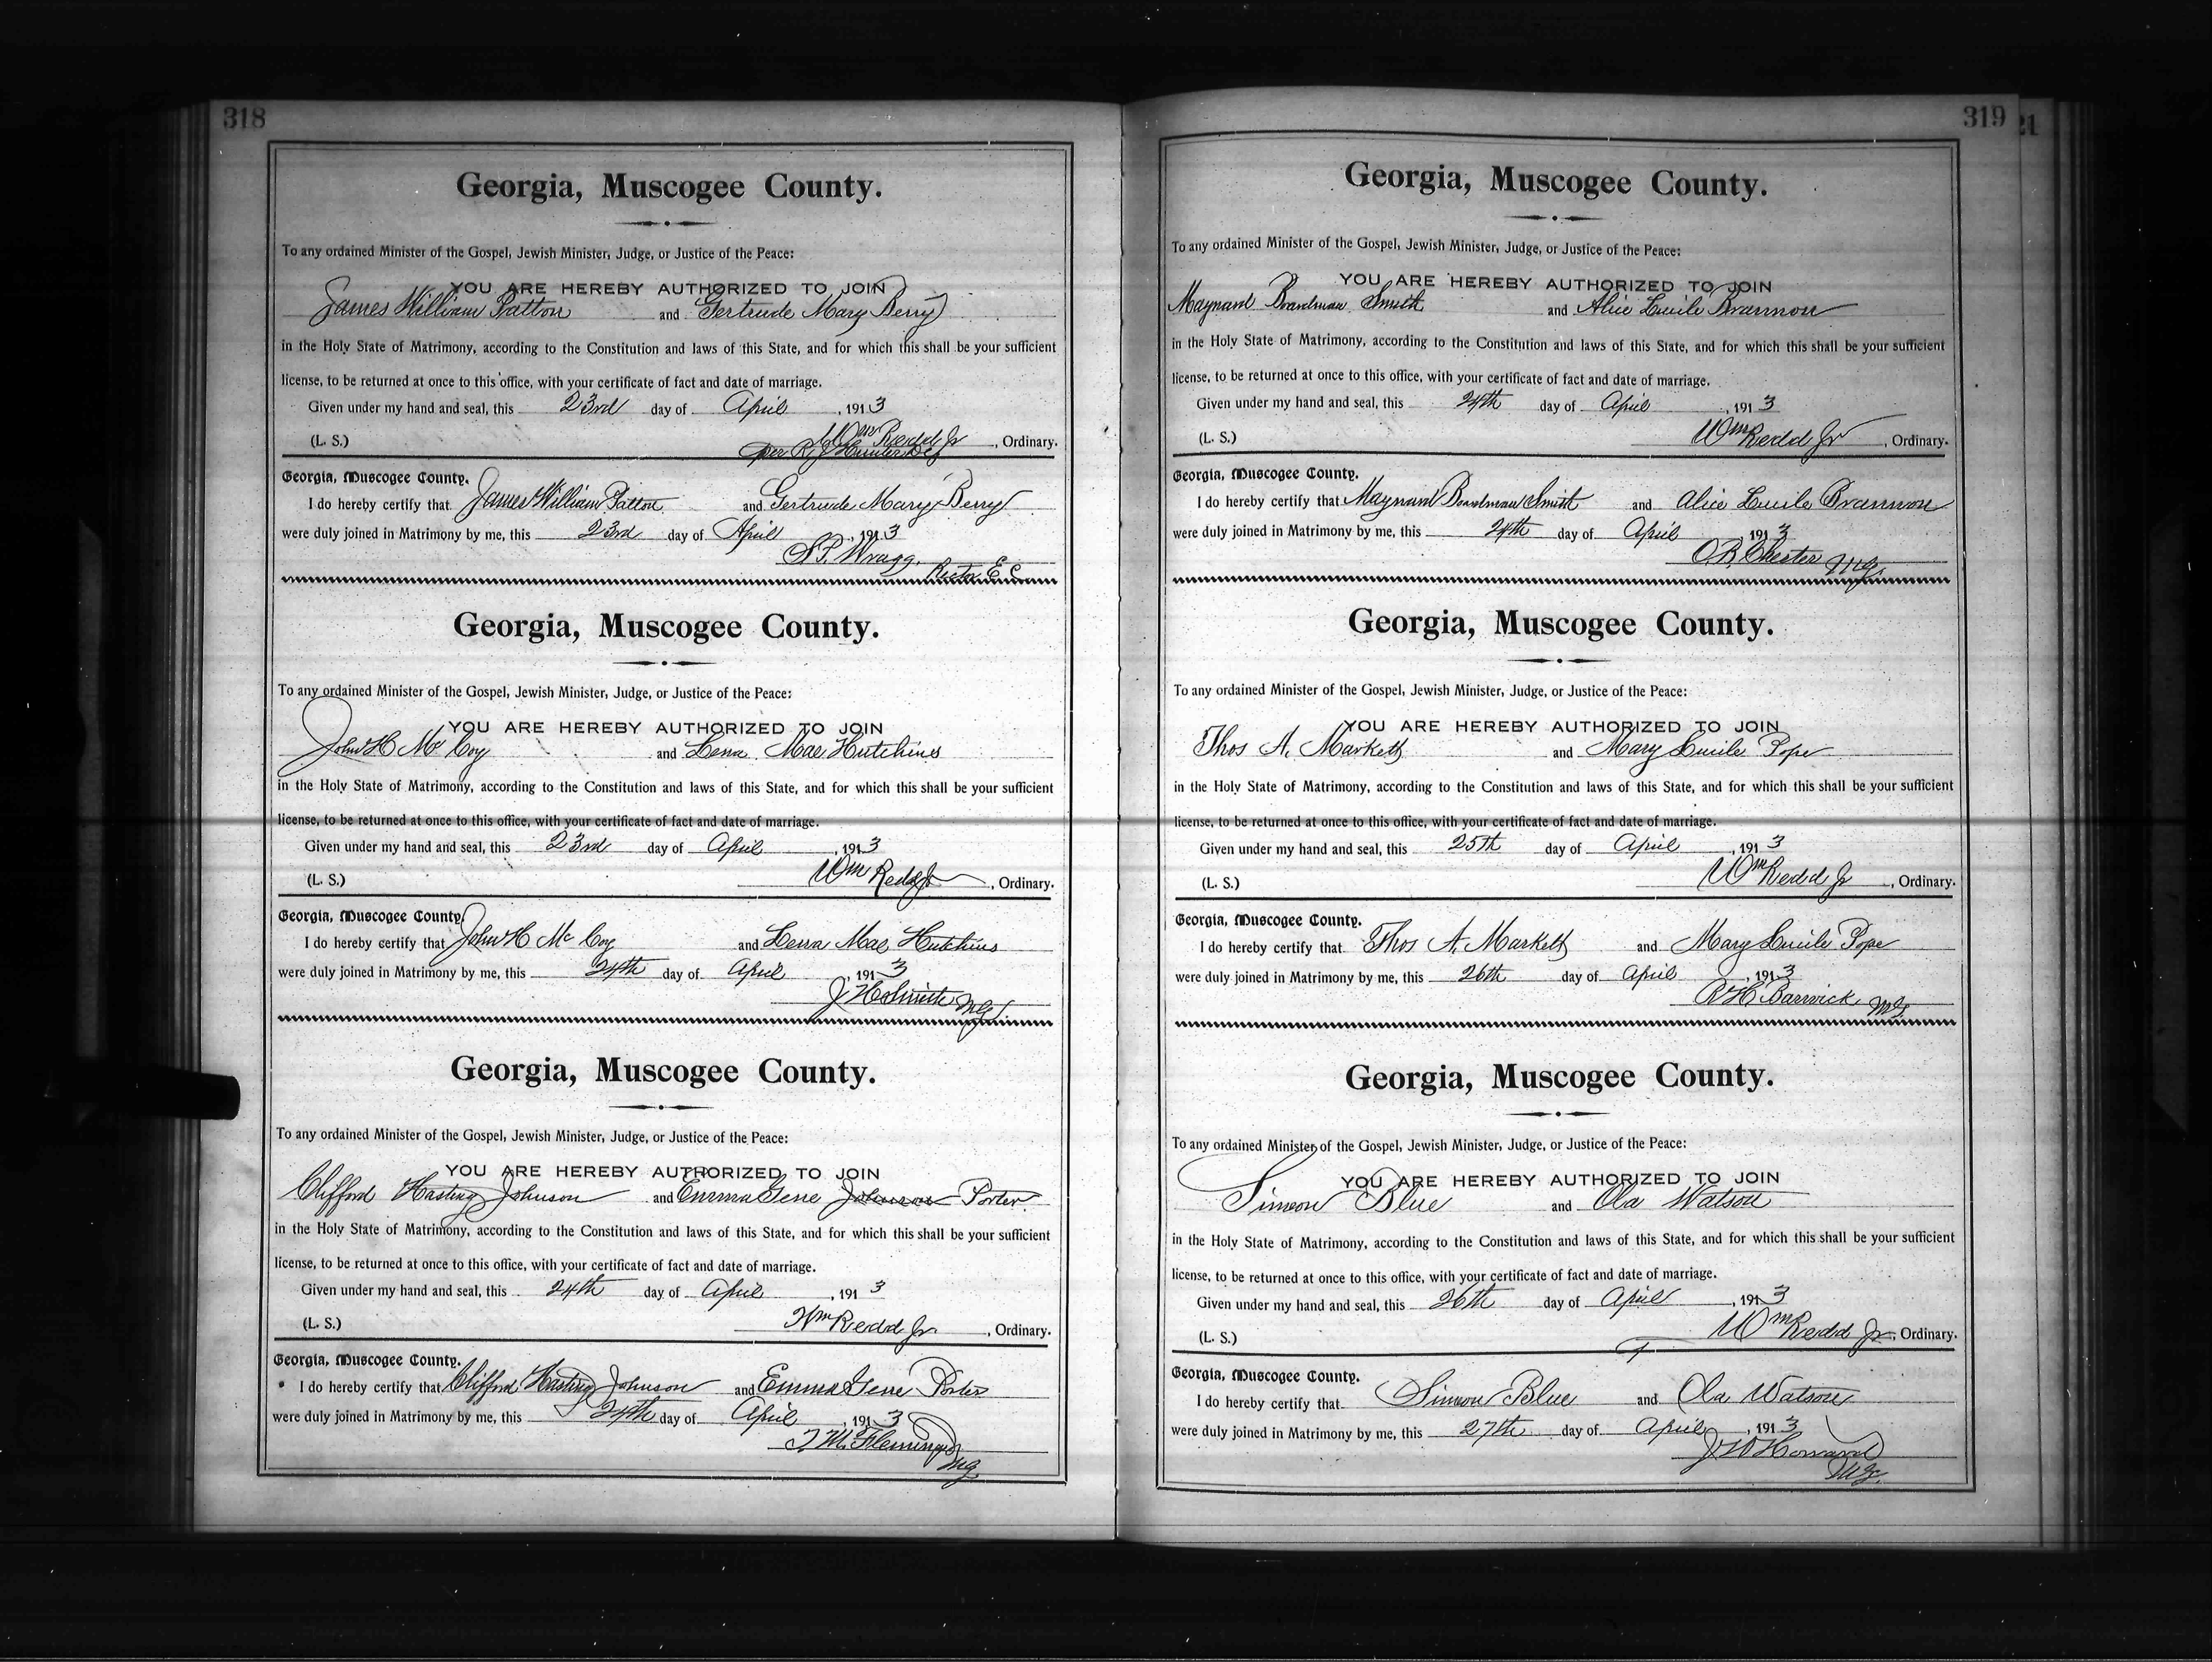 318
Georgia, Muscogee County.
To any ordained Minister of the Gospel, Jewish Minister, Judge, or Justice of the Peace:
YOU ARE HEREBY AUTHORIZED TO JOIN
James William Patton and Gertrude Mary Berry
in the Holy State of Matrimony, according to the Constitution and laws of this State, and for which this shall be your sufficient
license, to be returned at once to this office, with your certificate of fact and date of marriage.
Given under my hand and seal, this 23rd day of April, 1913
(L. S.) Wm Redd Jr, Ordinary.
per R. J. Hunter
Georgia, Muscogee County.
I do hereby certify that James William Patton and Gertrude Mary Berry
were duly joined in Matrimony by me, this 23rd day of April, 1913
S. P. Wragg. Rector E C
Georgia, Muscogee County.
To any ordained Minister of the Gospel, Jewish Minister, Judge, or Justice of the Peace:
YOU ARE HEREBY AUTHORIZED TO JOIN
John H Mc Coy and Lena Mae Hutchins
in the Holy State of Matrimony, according to the Constitution and laws of this State, and for which this shall be your sufficient
license, to be returned at once to this office, with your certificate of fact and date of marriage.
Given under my hand and seal, this 23rd day of April, 1913
(L. S.) Wm Redd Jr, Ordinary.
Georgia, Muscogee County.
I do hereby certify that John H Mc Coy and Lena Mae Hutchins
were duly joined in Matrimony by me, this 24th day of April, 1913
M.G.
Georgia, Muscogee County.
To any ordained Minister of the Gospel, Jewish Minister, Judge, or Justice of the Peace:
YOU ARE HEREBY AUTHORIZED TO JOIN
Clifford Hasting Johnson and Emma Gene Johnson Porter
in the Holy State of Matrimony, according to the Constitution and laws of this State, and for which this shall be your sufficient
license, to be returned at once to this office, with your certificate of fact and date of marriage.
Given under my hand and seal, this 24th day of April, 1913
(L. S.) Wm Redd Jr, Ordinary.
Georgia, Muscogee County.
I do hereby certify that Clifford Hasting Johnson and Emma Gene Porter
were duly joined in Matrimony by me, this 24th day of April, 1913
J. M. Fleming
M.G.
319
21
Georgia, Muscogee County.
To any ordained Minister of the Gospel, Jewish Minister, Judge, or Justice of the Peace:
YOU ARE HEREBY AUTHORIZED TO JOIN
Maynard Boardman Smith and Alice Lucile Brannon
in the Holy State of Matrimony, according to the Constitution and laws of this State, and for which this shall be your sufficient
license, to be returned at once to this office, with your certificate of fact and date of marriage.
Given under my hand and seal, this 24th day of April, 1913
(L. S.) Wm Redd Jr, Ordinary.
Georgia, Muscogee County.
I do hereby certify that Maynard Boardman Smith and Alice Lucile Brannon
were duly joined in Matrimony by me, this 24th day of April, 1913
O. B. Chester M.G.
Georgia, Muscogee County.
To any ordained Minister of the Gospel, Jewish Minister, Judge, or Justice of the Peace:
YOU ARE HEREBY AUTHORIZED TO JOIN
Thos A. Markett and Mary Lucile Pope
in the Holy State of Matrimony, according to the Constitution and laws of this State, and for which this shall be your sufficient
license, to be returned at once to this office, with your certificate of fact and date of marriage.
Given under my hand and seal, this 25th day of April, 1913
(L. S.) Wm Redd Jr, Ordinary.
Georgia, Muscogee County.
I do hereby certify that Thos A. Markett and Mary Lucile Pope
were duly joined in Matrimony by me, this 26th day of April, 1913
R H Barwick M.G.
Georgia, Muscogee County.
To any ordained Minister of the Gospel, Jewish Minister, Judge, or Justice of the Peace:
YOU ARE HEREBY AUTHORIZED TO JOIN
Simeon Blue and Ola Watson
in the Holy State of Matrimony, according to the Constitution and laws of this State, and for which this shall be your sufficient
license, to be returned at once to this office, with your certificate of fact and date of marriage.
Given under my hand and seal, this 26th day of April, 1913
(L. S.) Wm Redd Jr, Ordinary.
Georgia, Muscogee County.
I do hereby certify that Simeon Blue and Ola Watson
were duly joined in Matrimony by me, this 27th day of April, 1913
J W Howard
M.G.